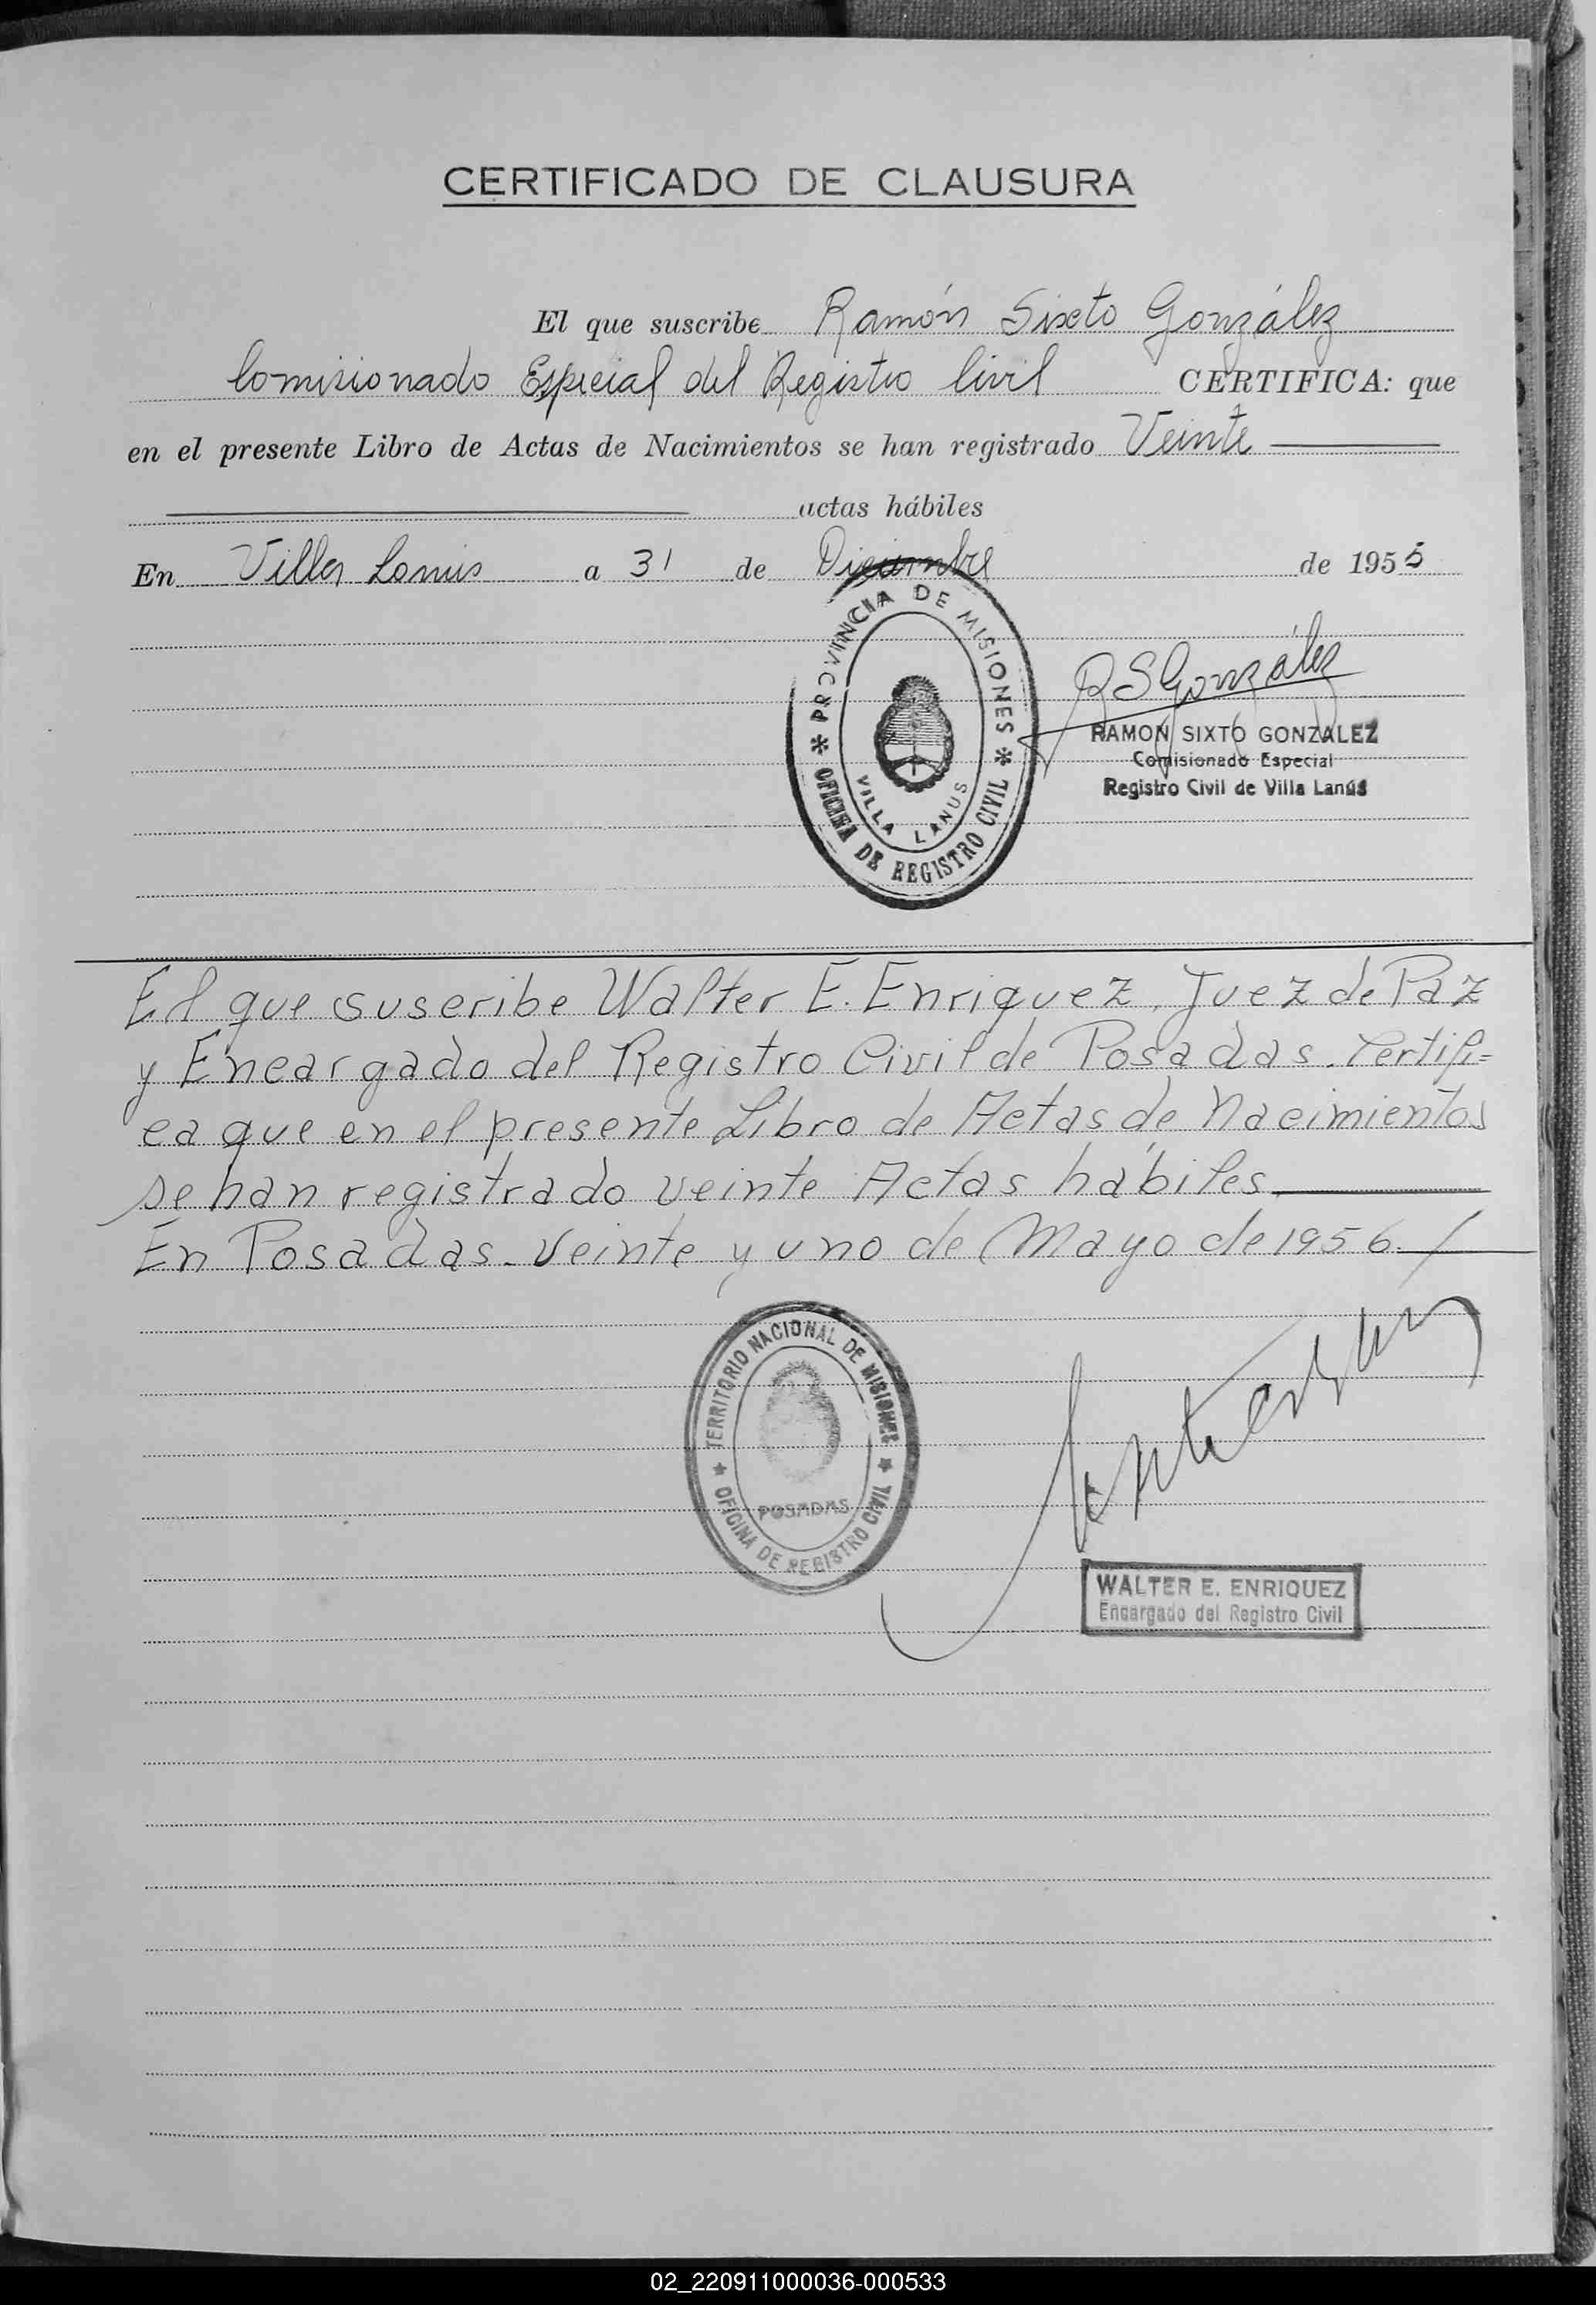 CERTIFICADO DE CLAUSURA
El que suscribe Ramón Sixto González
Comisionado Especial del Registro Civil CERTIFICA: que
en el presente Libro de Actas de Nacimientos se han registrado Veinte
actas hábiles
En Villa Lanús a 31 de Diciembre de 1955
PROVINCIA DE MISIONES
VILLA LANUS
OFICINA DE REGISTRO CIVIL
RSGonzález
RAMON SIXTO GONZALEZ
Comisionado Especial
Registro Civil de Villa Lanús
El que suscribe Walter E. Enriquez, Juez de Paz
y Encargado del Registro Civil de Posadas. Certifi=
ca que en el presente Libro de Actas de Nacimientos
se han registrado veinte Actas hábiles.
En Posadas. Veinte y uno de Mayo de 1956.
TERRITORIO NACIONAL DE MISIONES
POSADAS
OFICINA DE REGISTRO CIVIL
WALTER E. ENRIQUEZ
Encargado del Registro Civil
02_220911000036-000533